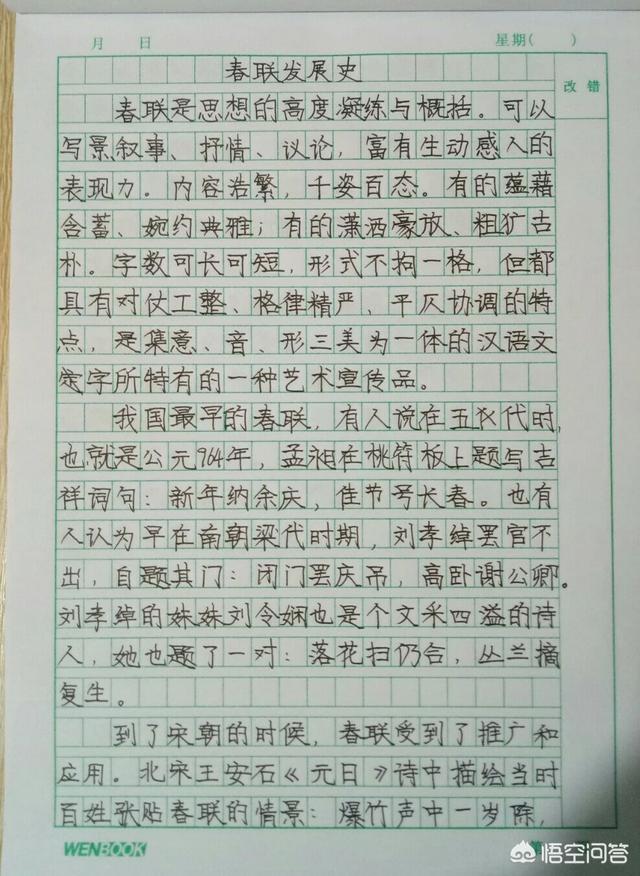 月 日 星期( )
改错
春联发展史
春联是思想的高度凝练与概括。可以
写景叙事、抒情、议论，富有生动感人的
表现力。内容浩繁，千姿百态。有的蕴藉
含蓄、婉约典雅；有的潇洒豪放、粗犷古
朴。字数可长可短，形式不拘一格，但都
具有对仗工整、格律精严、平仄协调的特
点，是集意、音、形三美为一体的汉语文
字所特有的一种艺术宣传品。
我国最早的春联，有人说在五代时，
也就是公元964年，孟昶在桃符板上题写吉
祥词句：新年纳余庆，佳节号长春。也有
人认为早在南朝梁代时期，刘孝绰罢官不
出，自题其门：闭门罢庆吊，高卧谢公卿。
刘孝绰的妹妹刘令娴也是个文采四溢的诗
人，她也题了一对：落花扫仍合，丛兰摘
复生。
到了宋朝的时候，春联受到了推广和
应用。北宋王安石《元日》诗中描绘当时
百姓张贴春联的情景：爆竹声中一岁除，
WENBOOK
悟空问答